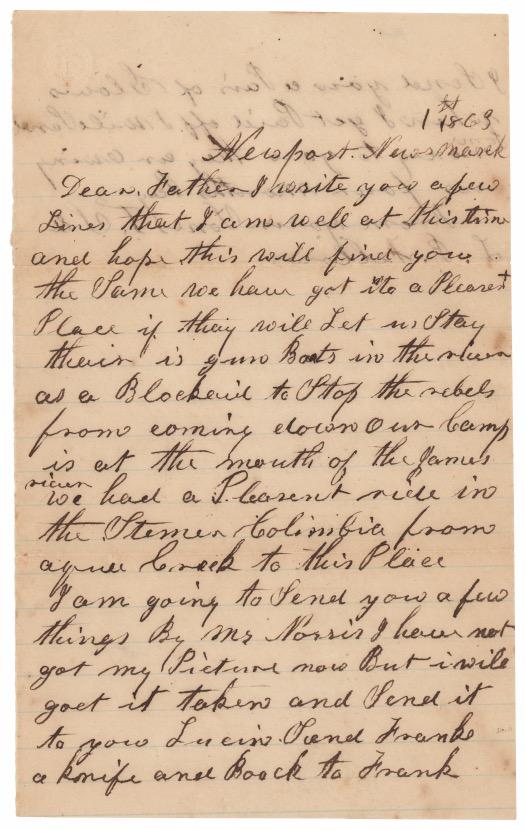 1st 1863
Newport News march
Dear Father I write you a few
Lines that I am well at this time
and hope this will find you
the Same we have got ito a Pleasent
Place if thay will Let us Stay
thair is gun Boats in the river
as a Blockaid to Stop the rebels
from coming down Our Camp
is at the mouth of the James
river
We had a Pleasent ride in
the Stemer Colimbia from
aqua Creek to this Place
I am going to Send you a few
things By Mr Norris I have not
got my Picture now But i will
goet it taken and Send it
to you Lucin Sand Franks
a knife and Boock to Frank